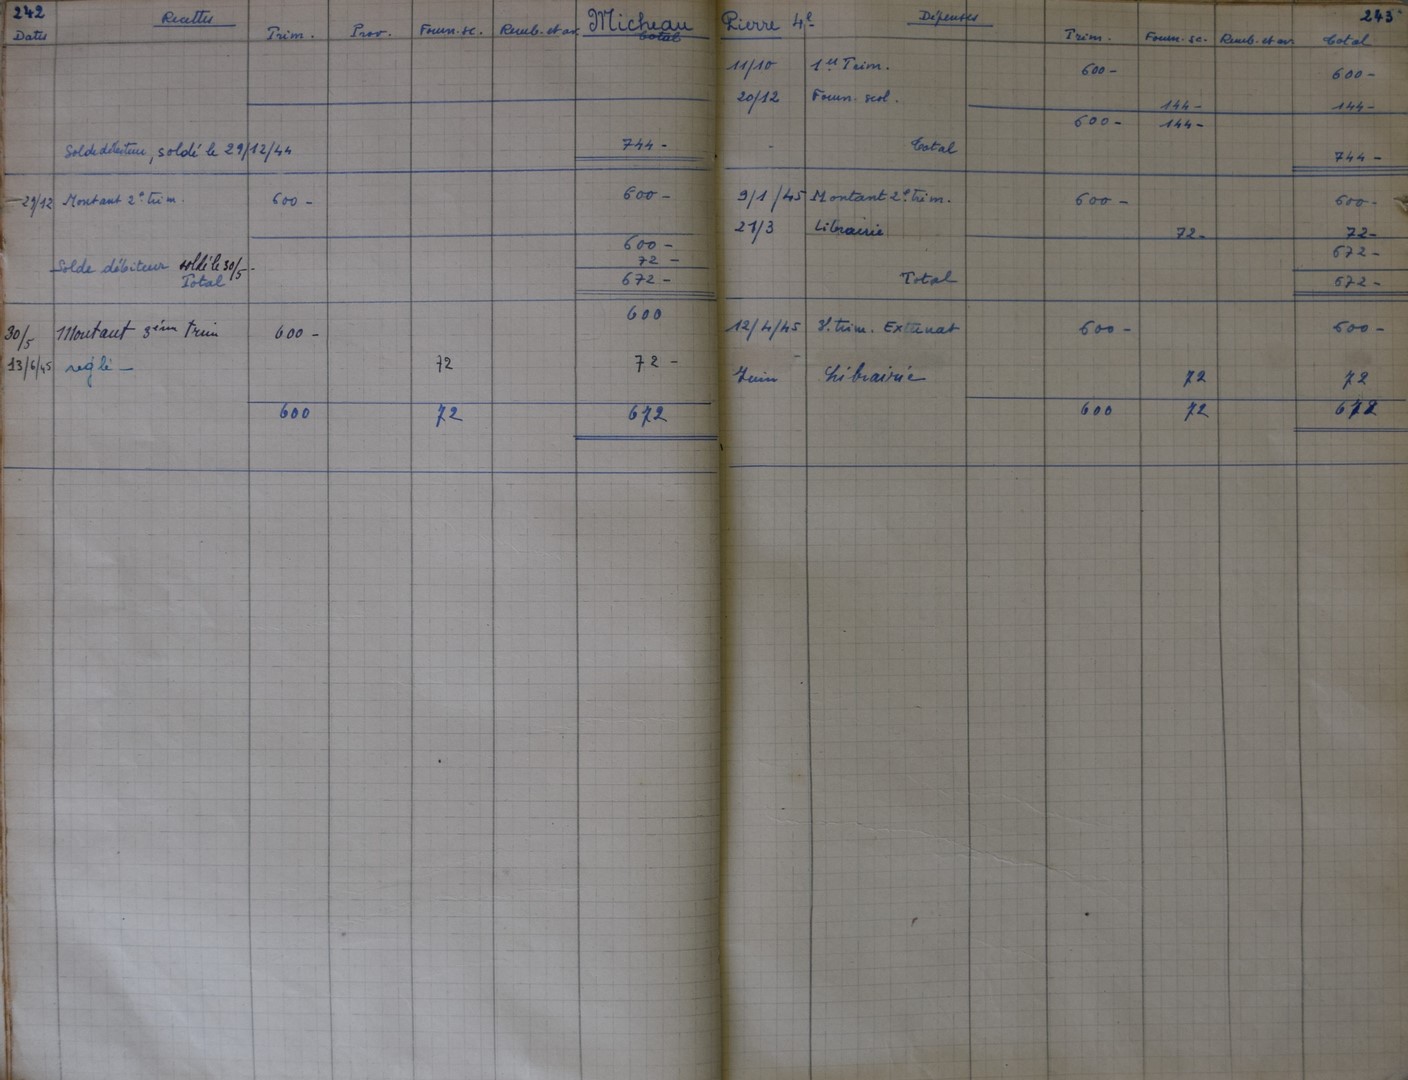 242
Recettes
Dates Trim. Prov. Fourn. sc. Remb. et av. Micheau
total
Solde débiteur, soldé le 29/12/44 744 -
29/12 Montant 2e trim. 600 - 600 -
600 -
Solde débiteur soldé le 30/5 - 72 -
Total 672 -
600
30/5 Montant 3ém trim 600 -
13/6/45 réglé - 72 72 -
600 72 672
Pierre 4e Dépenses 243
Trim. Fourn. sc. Remb. et av. total
11/10 1er Trim. 600 - 600 -
20/12 Fourn. scol. 144 - 144 -
600 - 144 -
total 744 -
9/1/45 Montant 2e trim. 600 - 600 -
21/3 Librairie 72 - 72 -
672 -
Total 672 -
12/4/45 trim. Externat 600 - 600 -
Juin Librairie 72 72
600 72 672